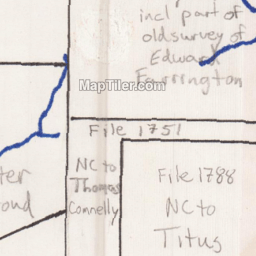 incl part of
old survey of
Edward
Farrington
MapTiler.com
File 1751
NC to
Thomas
Connelly
File 1788
NC to
Titus
ond